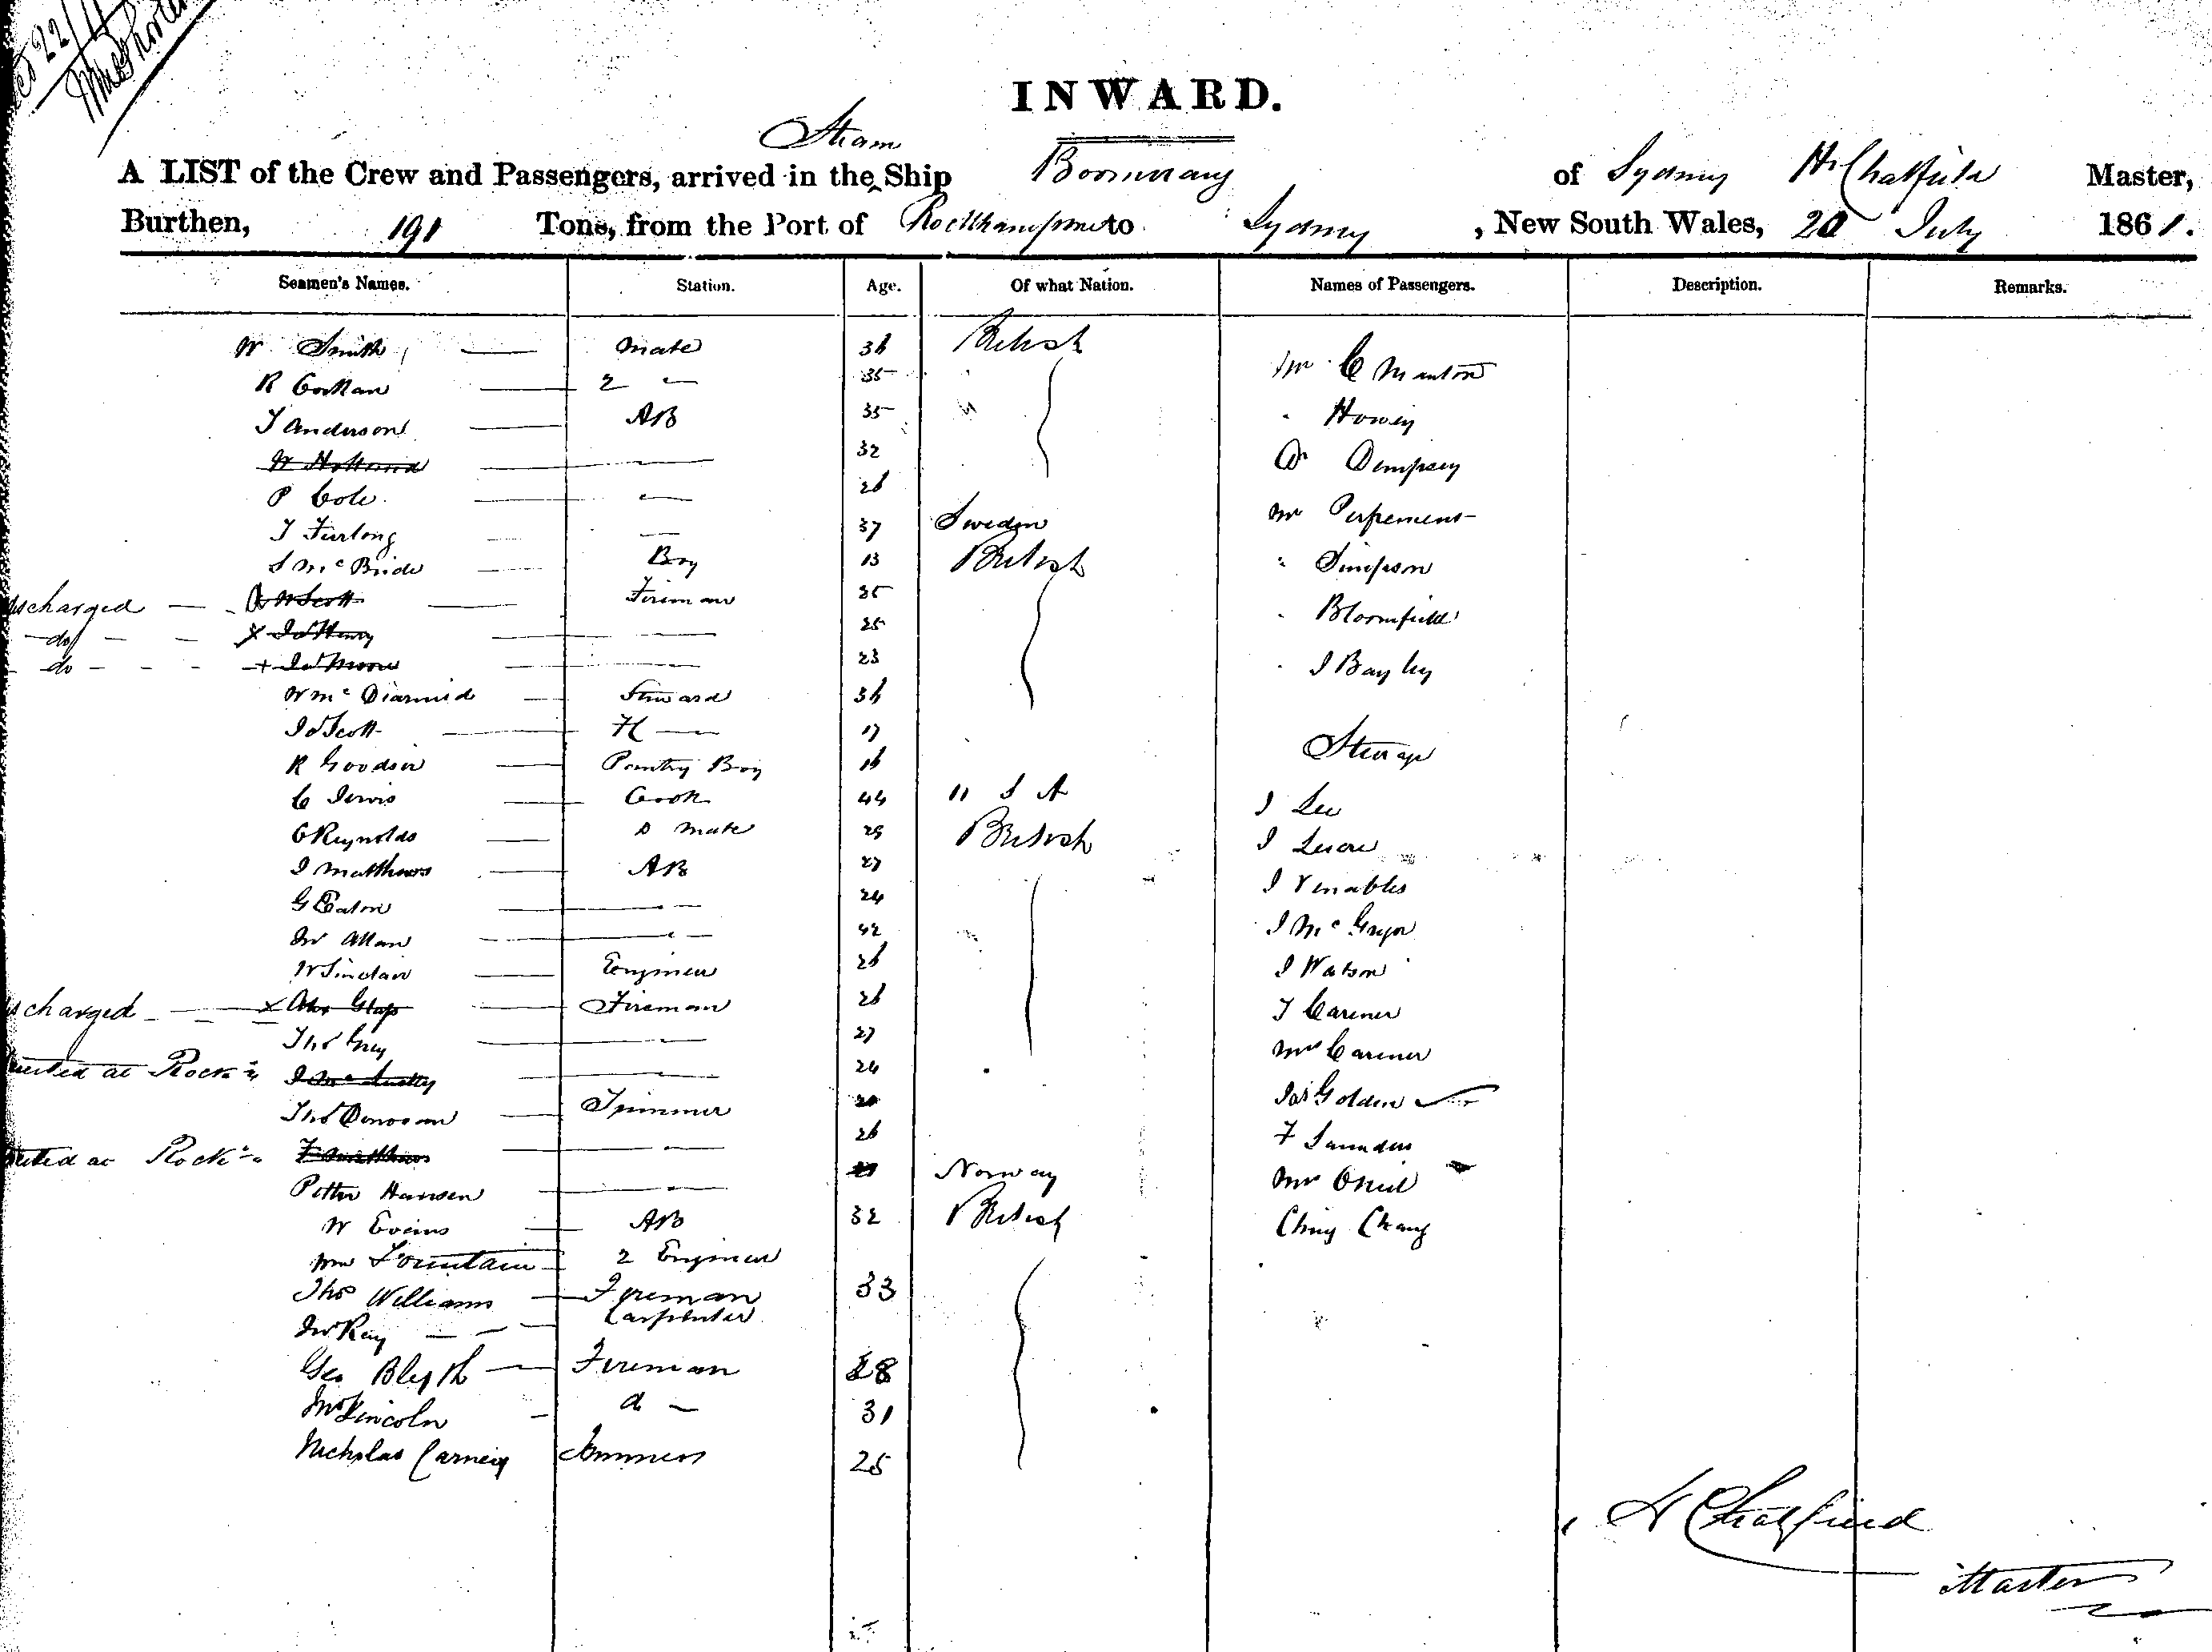 INWARD.
Steam
A LIST of the Crew and Passengers, arrived in the Ship Boomerang of Sydney H Chatfield Master,
Burthen, 191 Tons, from the Port of Rockhampton to Sydney, New South Wales, 20 July 1861.
Seamen's Names. Station. Age. Of what Nation. Names of Passengers. Description. Remarks.
W Smith Mate 36 British Mr C Manton
R Cockan 2 " 35
T Anderson AB 35 " Howey
W Holland " 32 Dr Dempsey
P Cole " 26
T Furlong " 37 Sweden Mr
S McBride Boy 13 British " Simpson
discharged W Scott Fireman 35 " Bloomfield
do Jas Henry " 25
do Jas Moore " 23 " J Bayley
W McDiarmid Steward 36
Jas Scott 17 Steerage
R Goodsir Pantry Boy 16
C Jervis Cook 44 U S A J Lee
C Reynolds Mate 29 British J
J Matthews AB 27 J Venables
G Eaton " 24 J McGregor
Jno Allan " 42
W Sinclair Engineer 26 J Watson
scharged Fireman 26 T Carener
Thos Grey " 27 Mrs Carener
at Rockn " 24 Jas Golden
Thos Donovan Trimmer 20 F Saunders
at Rockn F Matthews " 26
Peter Hansen " Norway Mr ONeil
W Evans AB 32 British Ching Chang
Wm Fountain 2 Engineer
Thos Williams Fireman 33
Jno Ray Carpenter
Geo Blyth Fireman 28
Jno Lincoln d 31
Nicholas Carney Trimmer 25
H Chatfield
Master